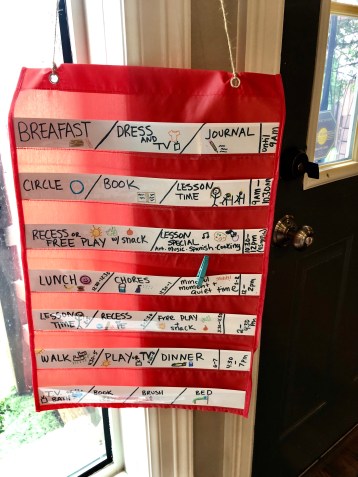 BREAKFAST / DRESS AND TV / JOURNAL until 9AM
CIRCLE / BOOK / LESSON TIME 9AM- 10:30AM
RECESS OR FREE PLAY w/ snack / LESSON SPECIAL Art-Music-Spanish-Cooking
LUNCH / CHORES / moment quiet time 12- 2PM
LESSON TIME / RECESS / FREE PLAY + snack
WALK / PLAY OR TV / DINNER 6-7 4:30- 7PM
TV BATH / BOOK / BRUSH / BED